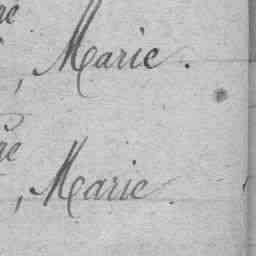 , Marie.
, Marie.